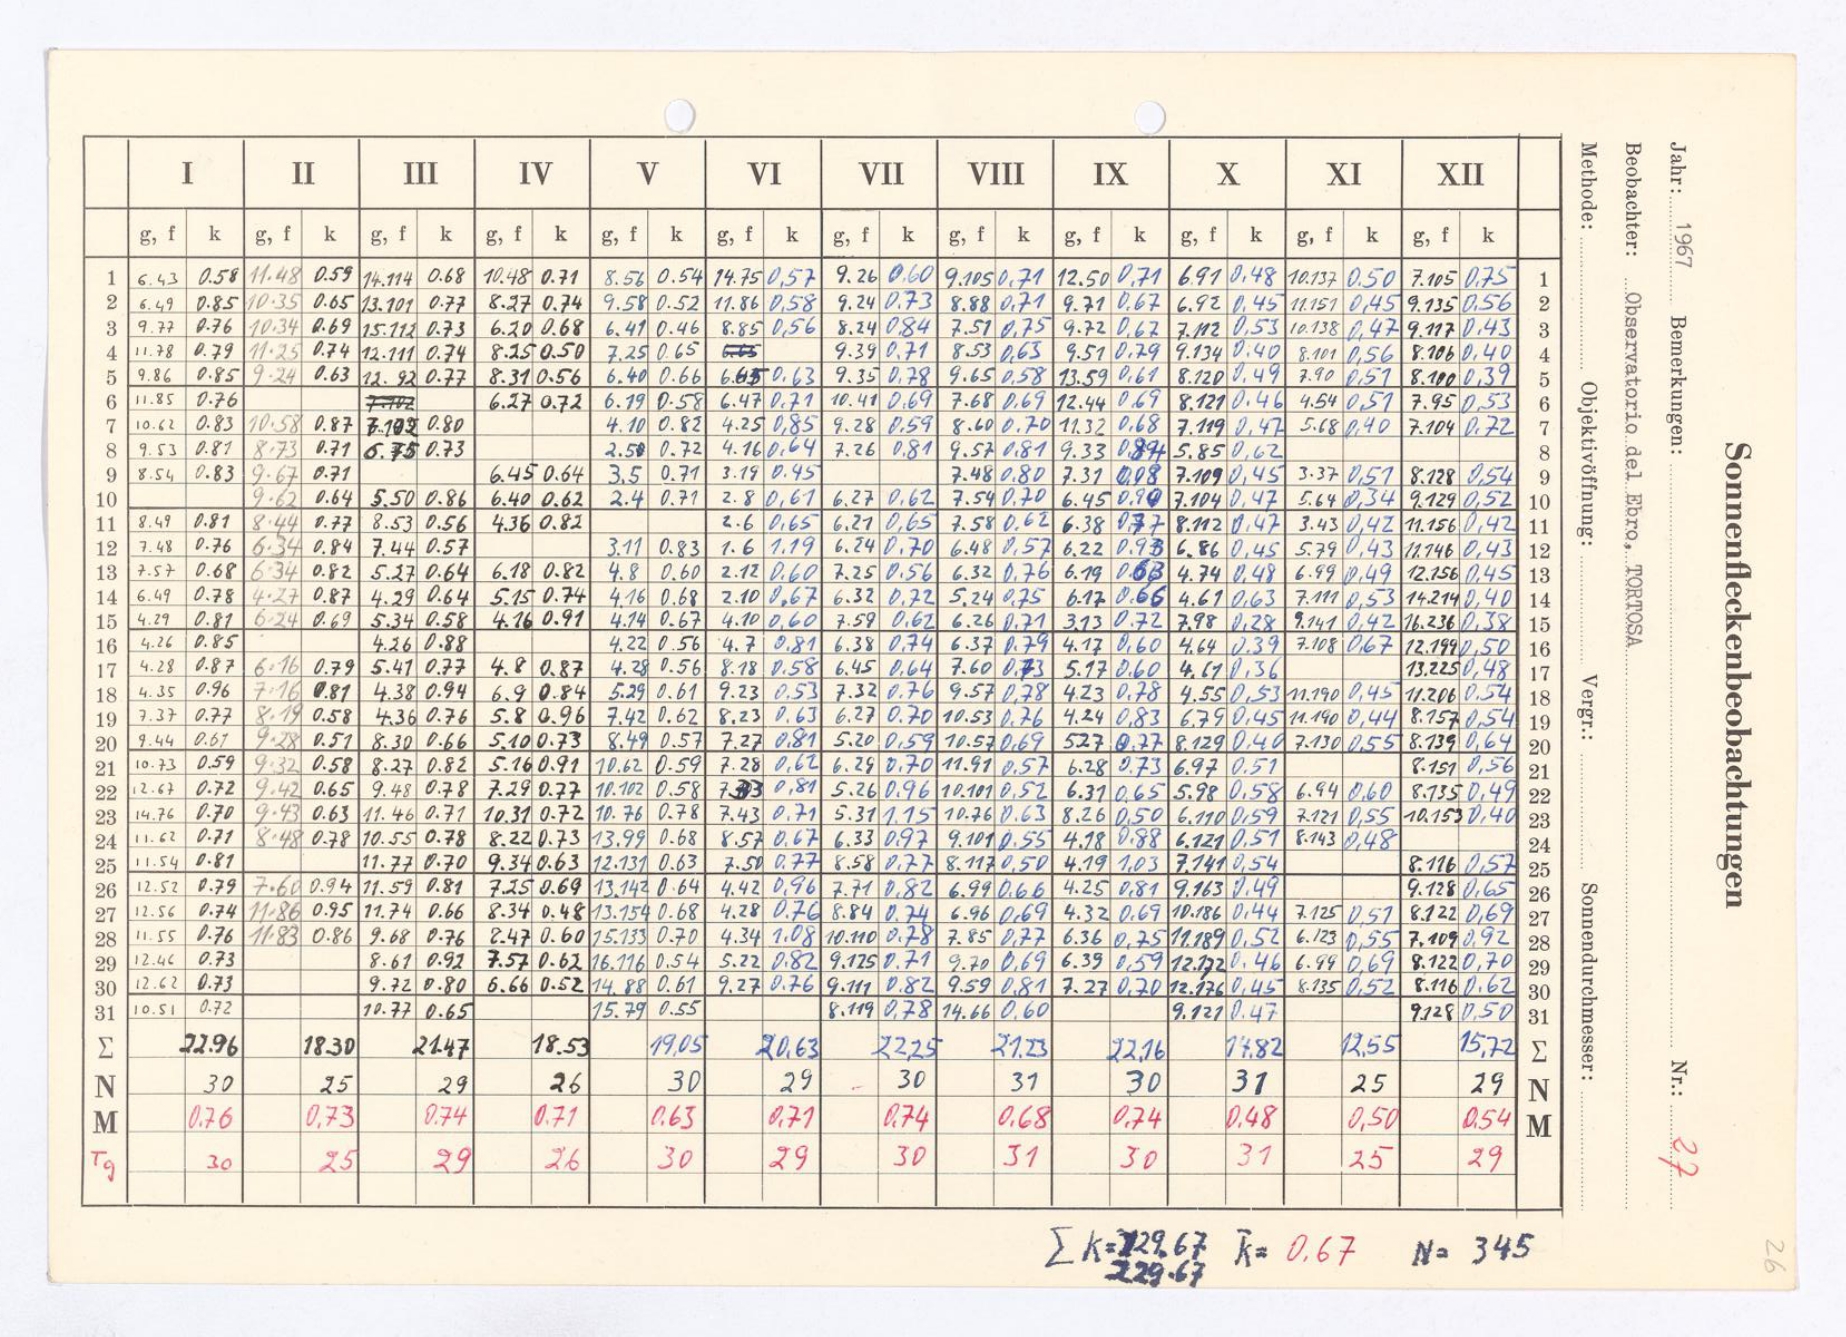 Sonnenfleckenbeobachtungen
Jahr: 1967 Bemerkungen: Nr.: 27
Beobachter: Observatorio del Ebro, TORTOSA
Methode: Objektivöffnung: Vergr.: Sonnendurchmesser:
I II III IV V VI VII VIII IX X XI XII
g, f k g, f k g, f k g, f k g, f k g, f k g, f k g, f k g, f k g, f k g, f k g, f k
1 6.43 0.58 11.48 0.59 14.114 0.68 10.48 0.71 8.56 0.54 14.75 0,57 9.26 0.60 9.105 0,71 12.50 0,71 6.91 0,48 10.137 0,50 7.105 0,75 1
2 6.49 0.85 10.35 0.65 13.101 0.77 8.27 0.74 9.58 0.52 11.86 0,58 9.24 0.73 8.88 0,71 9.71 0,67 6.92 0,45 11.151 0,45 9.135 0,56 2
3 9.77 0.76 10.34 0.69 15.112 0.73 6.20 0.68 6.41 0.46 8.85 0,56 8.24 0,84 7.51 0,75 9.72 0,67 7.112 0,53 10.138 0,47 9.117 0,43 3
4 11.78 0.79 11.25 0.74 12.111 0.74 8.25 0.50 7.25 0.65 9.39 0,71 8.53 0,63 9.51 0,79 9.134 0.40 8.101 0,56 8.106 0,40 4
5 9.86 0.85 9.24 0.63 12.92 0.77 8.31 0.56 6.40 0.66 6.65 0,63 9.35 0,78 9.65 0,58 13.59 0,61 8.120 0,49 7.90 0,51 8.100 0,39 5
6 11.85 0.76 6.27 0.72 6.19 0.58 6.47 0,71 10.41 0,69 7.68 0,69 12.44 0,69 8.121 0,46 4.54 0,51 7.95 0,53 6
7 10.62 0.83 10.58 0.87 7.102 0.80 4.10 0.82 4.25 0,85 9.28 0,59 8.60 0,70 11.32 0,68 7.119 0,47 5.68 0,40 7.104 0.72 7
8 9.53 0.81 8.73 0.71 6.75 0.73 2.50 0.72 4.16 0,64 7.26 0,81 9.57 0,81 9.33 0,84 5.85 0,62 8
9 8.54 0.83 9.67 0.71 6.45 0.64 3,5 0.71 3.19 0.45 7.48 0,80 7.31 0,98 7.109 0,45 3.37 0,51 8.128 0,54 9
10 9.62 0.64 5.50 0.86 6.40 0.62 2.4 0.71 2.8 0,61 6.27 0,62 7.54 0,70 6.45 0,90 7.104 0,47 5.64 0,34 9.129 0,52 10
11 8.49 0.81 8.44 0.77 8.53 0.56 4.36 0.82 2.6 0,65 6.21 0,65 7.58 0,62 6.38 0,77 8.112 0,47 3.43 0,42 11.156 0,42 11
12 7.48 0.76 6.34 0.84 7.44 0.57 3.11 0.83 1.6 1.19 6.24 0,70 6.48 0,57 6.22 0.93 6.86 0,45 5.79 0,43 11.146 0,43 12
13 7.57 0.68 6.34 0.82 5.27 0.64 6.18 0.82 4.8 0.60 2.12 0,60 7.25 0,56 6.32 0,76 6.19 0.63 4.74 0,48 6.99 0,49 12.156 0,45 13
14 6.49 0.78 4.27 0.87 4.29 0.64 5.15 0.74 4.16 0.68 2.10 0,67 6.32 0,72 5.24 0,75 6.17 0.66 4.61 0,63 7.111 0,53 14.214 0,40 14
15 4.29 0.81 6.24 0.69 5.34 0.58 4.16 0.91 4.14 0.67 4.10 0,60 7.59 0,62 6.26 0,71 3.13 0.72 7.98 0,28 9.141 0,42 16.236 0,38 15
16 4.26 0.85 4.26 0.88 4.22 0.56 4.7 0,81 6.38 0,74 6.37 0,79 4.17 0,60 4.64 0,39 7.108 0,67 12.199 0,50 16
17 4.28 0.87 6.16 0.79 5.41 0.77 4.8 0.87 4.28 0.56 8.18 0,58 6.45 0,64 7.60 0,73 5.17 0,60 4.61 0,36 13.225 0,48 17
18 4.35 0.96 7.16 0.81 4.38 0.94 6.9 0.84 5.29 0.61 9.23 0,53 7.32 0,76 9.57 0,78 4.23 0,78 4.55 0,53 11.190 0,45 11.206 0.54 18
19 7.37 0.77 8.19 0.58 4.36 0.76 5.8 0.96 7.42 0.62 8.23 0,63 6.27 0,70 10.53 0,76 4.24 0,83 6.79 0,45 11.190 0,44 8.157 0,54 19
20 9.44 0.61 9.28 0.51 8.30 0.66 5.10 0.73 8.49 0.57 7.27 0,81 5.20 0,59 10.57 0,69 5.27 0,77 8.129 0,40 7.130 0,55 8.139 0,64 20
21 10.73 0.59 9.32 0.58 8.27 0.82 5.16 0.91 10.62 0.59 7.28 0,62 6.29 0,70 11.91 0,57 6.28 0.73 6.97 0.51 8.151 0,56 21
22 12.67 0.72 9.42 0.65 9.48 0.78 7.29 0.77 10.102 0.58 7.33 0,81 5.26 0,96 10.101 0,52 6.31 0,65 5.98 0,58 6.94 0,60 8.135 0,49 22
23 14.76 0.70 9.43 0.63 11.46 0.71 10.31 0.72 10.76 0.78 7.43 0,71 5.31 1,15 10.76 0.63 8.26 0,50 6.110 0,59 7.121 0,55 10.153 0,40 23
24 11.62 0.71 8.48 0.78 10.55 0.78 8.22 0.73 13.99 0.68 8.57 0,67 6.33 0,97 9.101 0.55 4.18 0.88 6.121 0,51 8.143 0,48 24
25 11.54 0.81 11.77 0.70 9.34 0.63 12.131 0.63 7.50 0,77 8.58 0,77 8.117 0,50 4.19 1,03 7.141 0,54 8.116 0,57 25
26 12.52 0.79 7.60 0.94 11.59 0.81 7.25 0.69 13.142 0.64 4.42 0,96 7.71 0,82 6.99 0.66 4.25 0,81 9.163 0,49 9.128 0,65 26
27 12.56 0.74 11.86 0.95 11.74 0.66 8.34 0.48 13.154 0.68 4.28 0,76 8.84 0.74 6.96 0,69 4.32 0.69 10.186 0,44 7.125 0,51 8.122 0,69 27
28 11.55 0.76 11.83 0.86 9.68 0.76 8.47 0.60 15.133 0.70 4.34 1.08 10.110 0,78 7.85 0,77 6.36 0,75 11.189 0,52 6.123 0,55 7.109 0,92 28
29 12.46 0.73 8.61 0.92 7.57 0.62 16.116 0.54 5.22 0,82 9.125 0,71 9.70 0,69 6.39 0,59 12.172 0,46 6.99 0,69 8.122 0,70 29
30 12.62 0.73 9.72 0.80 6.66 0.52 14.88 0.61 9.27 0.76 9.111 0,82 9.59 0,81 7.27 0,70 12.176 0,45 8.135 0,52 8.116 0,62 30
31 10.51 0.72 10.77 0.65 15.79 0.55 8.119 0,78 14.66 0,60 9.121 0.47 9.128 0,50 31
Σ 22.96 18.30 21.47 18.53 19,05 20,63 22,25 21.23 22,16 14.82 12,55 15,72 Σ
N 30 25 29 26 30 29 30 31 30 31 25 29 N
M 0.76 0,73 0.74 0.71 0.63 0,71 0.74 0.68 0,74 0.48 0,50 0.54 M
Tg 30 25 29 26 30 29 30 31 30 31 25 29
Σ k= 229.67 k̄= 0,67 N= 345
229.67
26